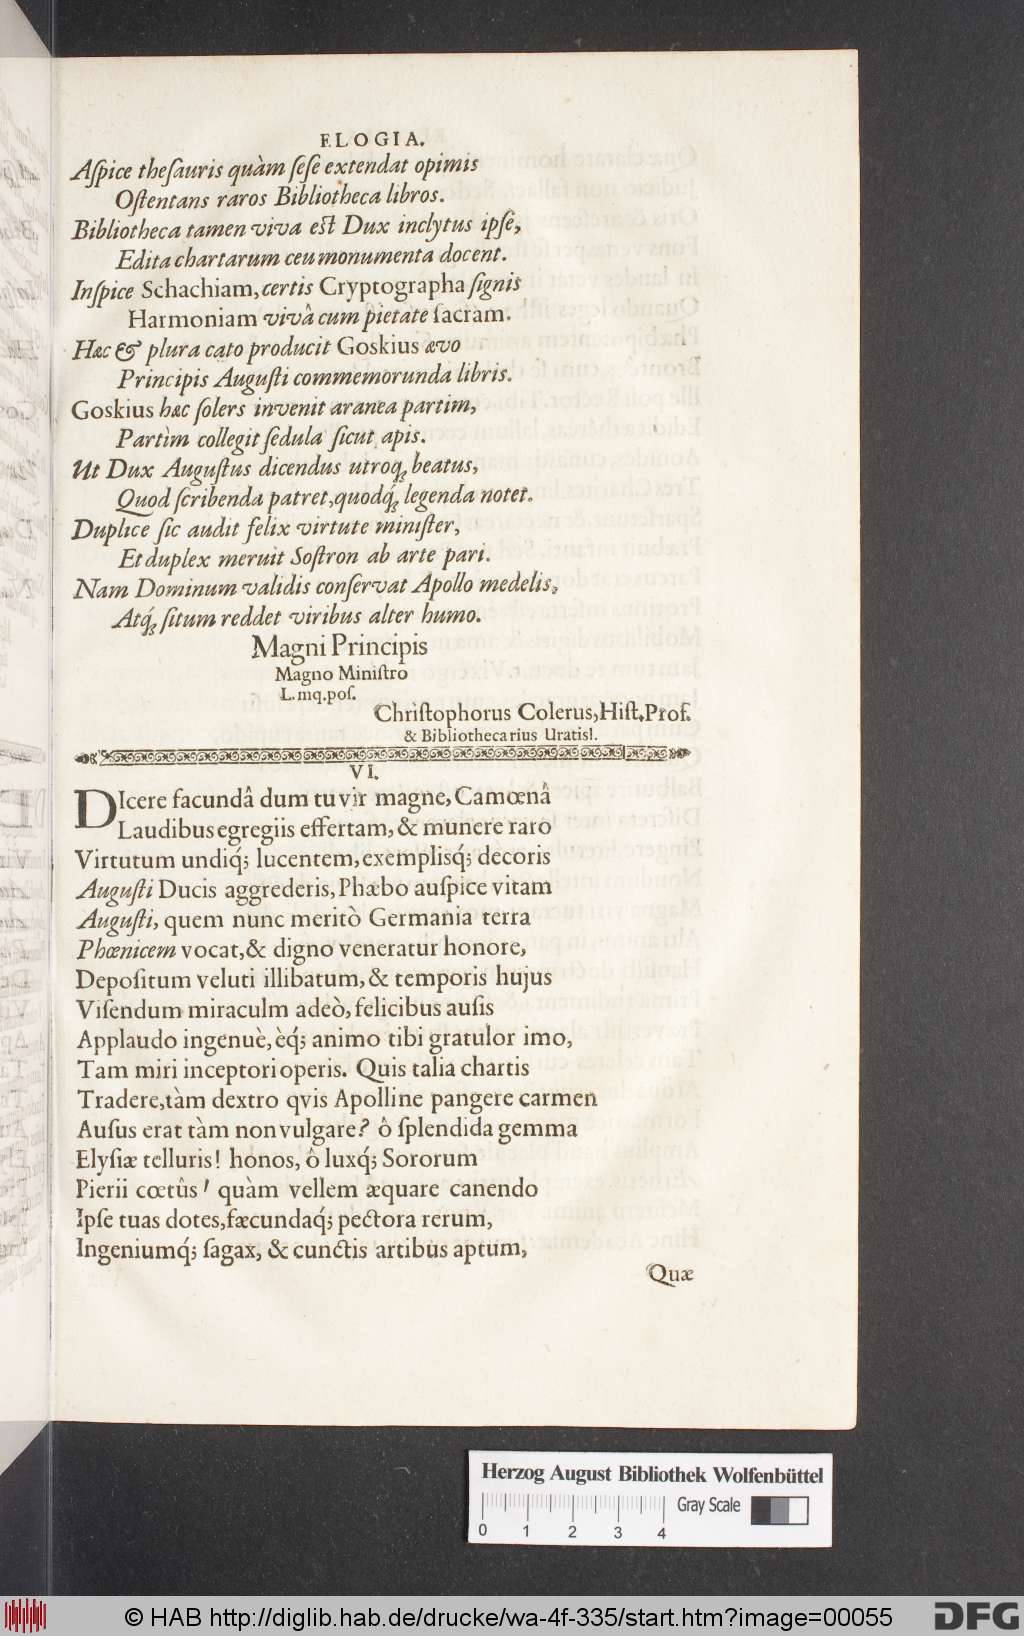 ELOGIA.
Aſpice theſauris quàm ſeſe extendat opimis
Oſtentans raros Bibliotheca libros.
Bibliotheca tamen viva eſt Dux inclytus ipſe,
Edita chartarum ceu monumenta docent.
Inſpice Schachiam, certis Cryptographa ſignis
Harmoniam vivâ cum pietate ſacram.
Hæc & plura cato producit Goskius ævo
Principis Auguſti commemorunda libris.
Goskius hæc ſolers invenit aranea partim,
Partìm collegit ſedula ſicut apis.
Ut Dux Auguſtus dicendus utroq; beatus,
Quod ſcribenda patret, quodq́; legenda notet.
Duplice ſic audit felix virtute miniſter,
Et duplex meruit Soſtron ab arte pari.
Nam Dominum validis conſervat Apollo medelis,
Atq́; ſitum reddet viribus alter humo.
Magni Principis
Magno Miniſtro
L.mq.poſ.
Chriſtophorus Colerus, Hiſt. Prof.
& Bibliothecarius Uratisl.
VI.
DIcere facundâ dum tu vir magne, Camœnâ
Laudibus egregiis effertam, & munere raro
Virtutum undiq́; lucentem, exemplisq́; decoris
Auguſti Ducis aggrederis, Phæbo auſpice vitam
Auguſti, quem nunc meritò Germania terra
Phœnicem vocat, & digno veneratur honore,
Depoſitum veluti illibatum, & temporis hujus
Viſendum miraculm adeò, felicibus auſis
Applaudo ingenuè, èq́; animo tibi gratulor imo,
Tam miri inceptori operis. Quis talia chartis
Tradere, tàm dextro qvis Apolline pangere carmen
Auſus erat tàm non vulgare? ô ſplendida gemma
Elyſiæ telluris! honos, ô luxq́; Sororum
Pierii cœtûs! quàm vellem æquare canendo
Ipſe tuas dotes, fæcundaq́; pectora rerum,
Ingeniumq́; ſagax, & cunctis artibus aptum,
Quæ
Herzog August Bibliothek Wolfenbüttel
Gray Scale
0 1 2 3 4
© HAB http://diglib.hab.de/drucke/wa-4f-335/start.htm?image=00055
DFG